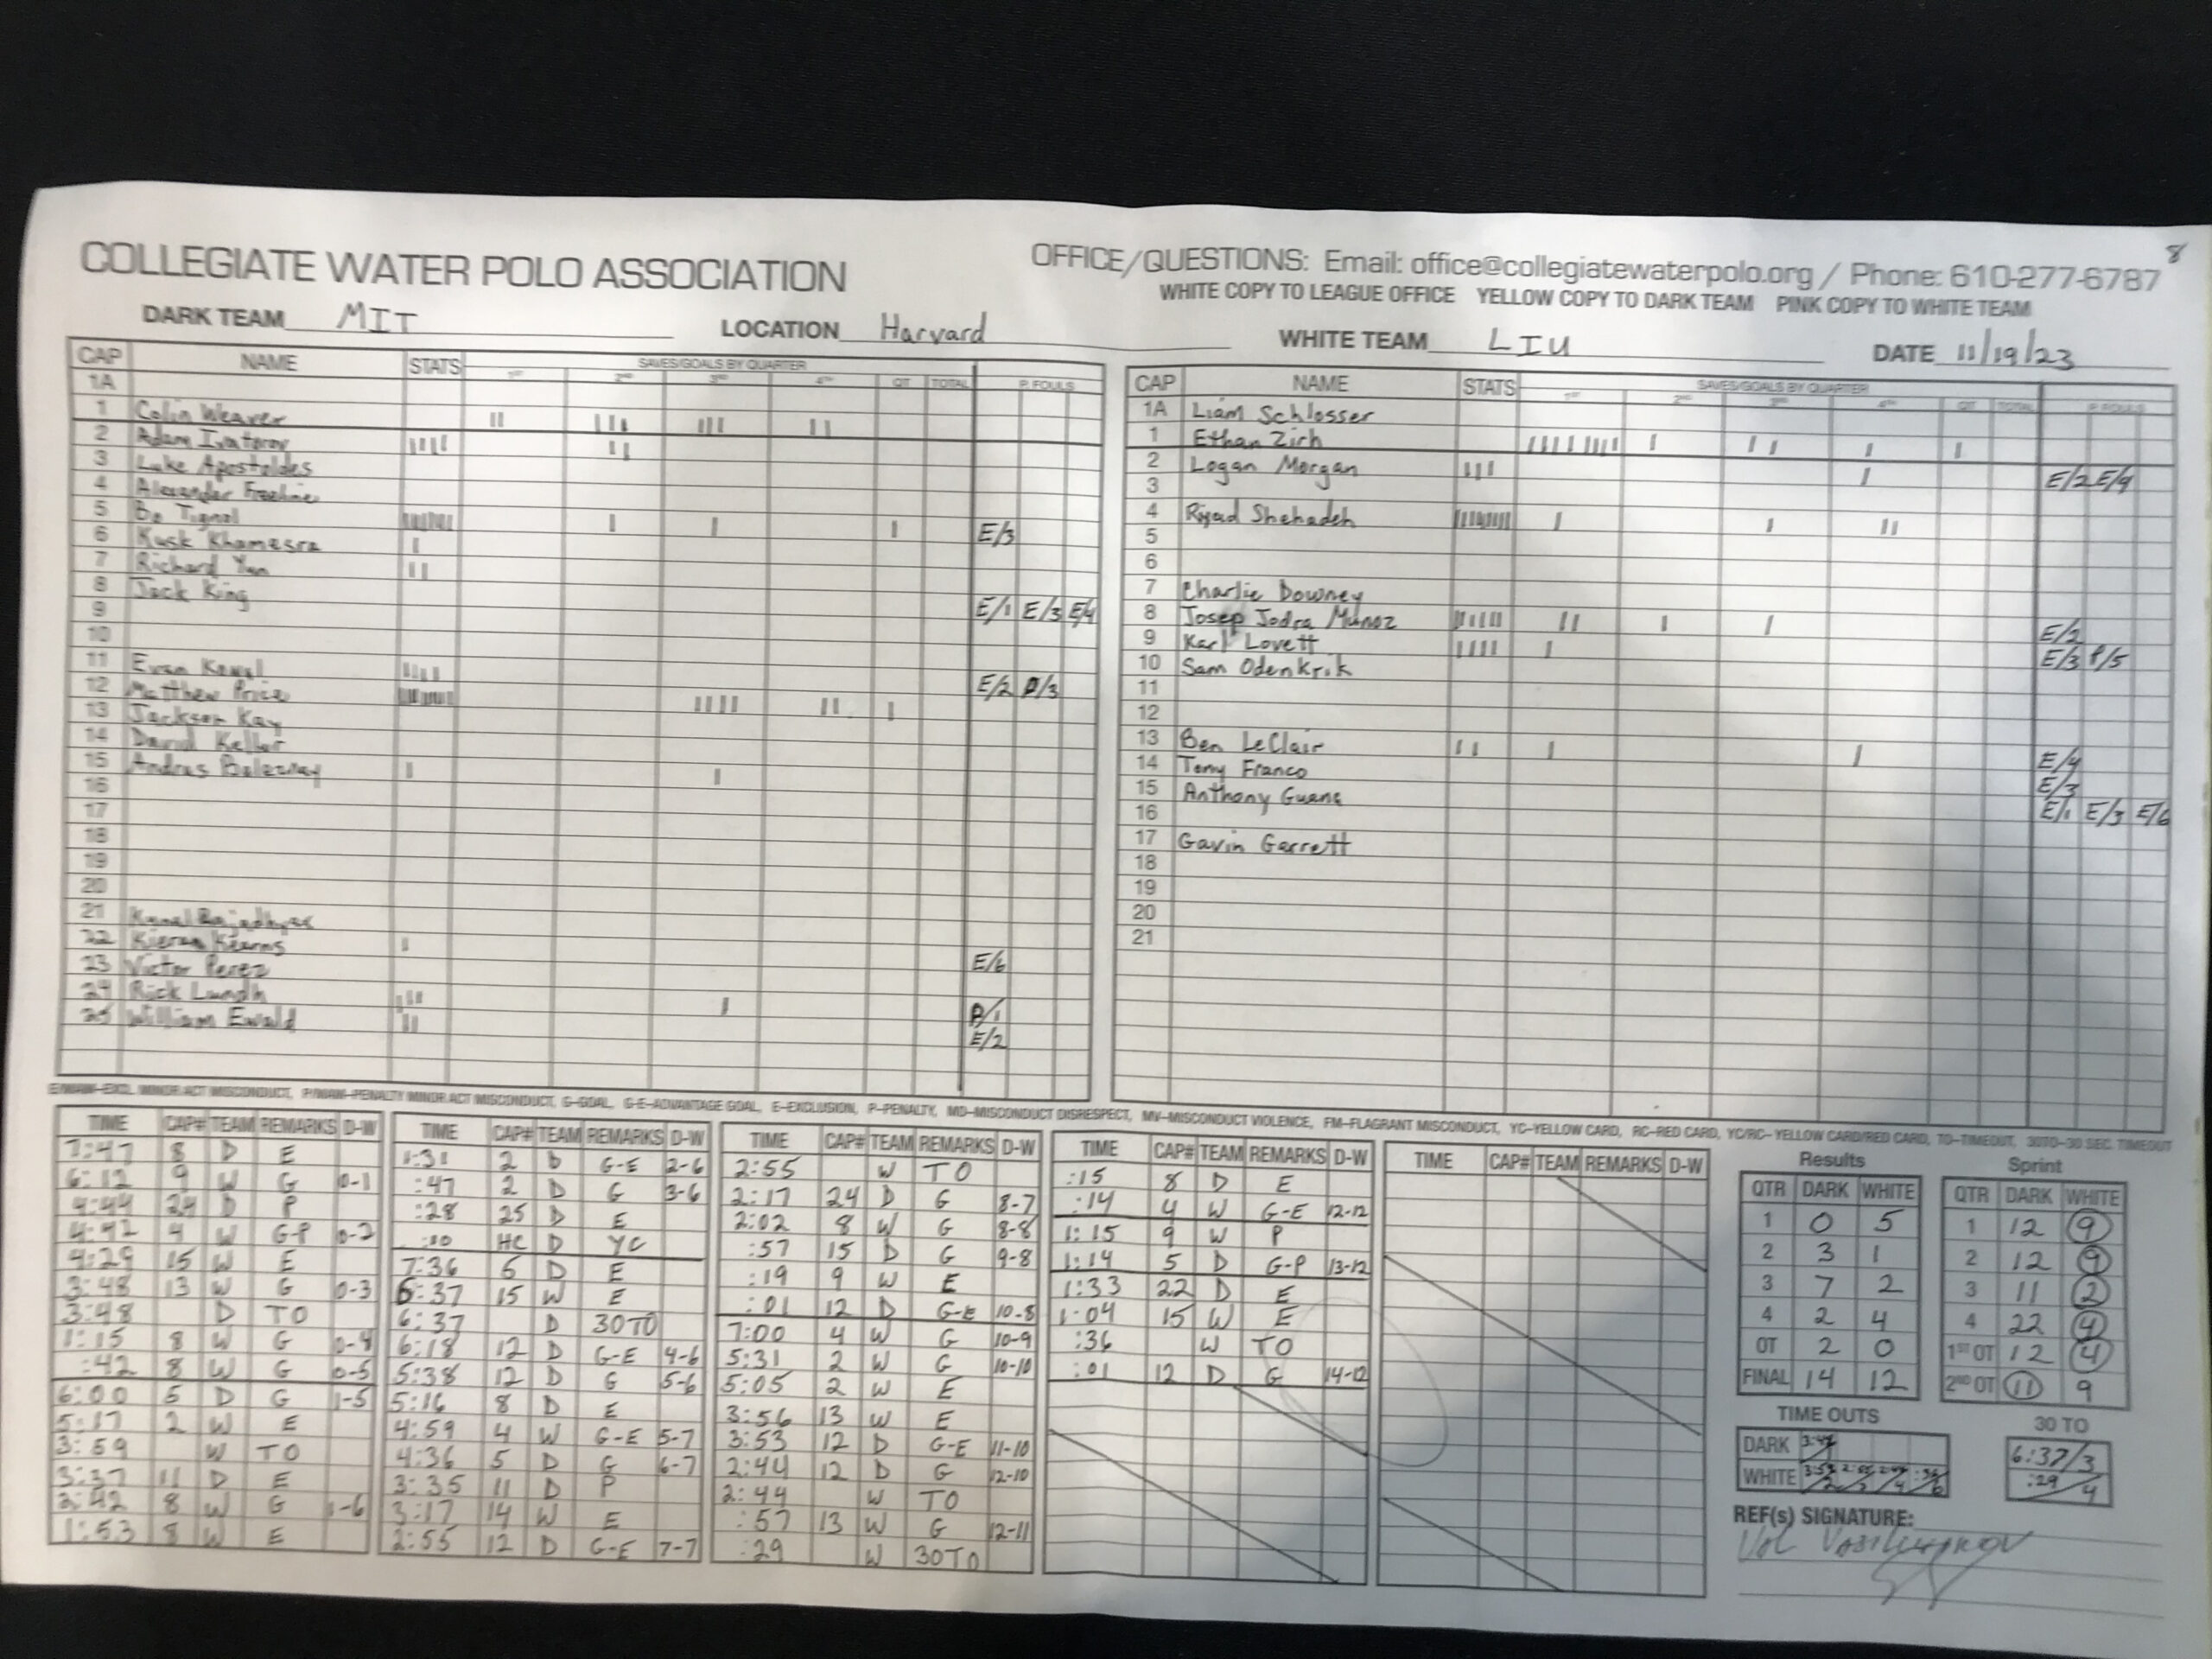 8
COLLEGIATE WATER POLO ASSOCIATION
OFFICE/QUESTIONS: Email: office@collegiatewaterpolo.org / Phone: 610-277-6787
WHITE COPY TO LEAGUE OFFICE YELLOW COPY TO DARK TEAM PINK COPY TO WHITE TEAM
DARK TEAM MIT LOCATION Harvard WHITE TEAM LIU DATE 11/19/23
CAP NAME STATS SAVES/GOALS BY QUARTER
1ST 2ND 3RD 4TH OT TOTAL P. FOULS
1A
1 Colin Weaver
2 Adam
3 Luke Apostolides
4 Alexander
5 Bo Tignal E/3
6 Kusk Khamesra
7 Richard Yun
8 Jack King E/1 E/3 E/4
9
10
11 Evan Kowal E/2 P/3
12 Matthew Price
13 Jackson Kay
14 David Keller
15 Andras
16
17
18
19
20
21 Kunal
22 Kieran Kearns E/6
23 Victor Perez
24 Rick Lundh P/1
25 William Ewald E/2
CAP NAME STATS SAVES/GOALS BY QUARTER
1ST 2ND 3RD 4TH OT TOTAL P. FOULS
1A Liam Schlosser
1 Ethan Zich
2 Logan Morgan E/2 E/4
3
4 Riyad Shehadeh
5
6
7 Charlie Downey
8 Josep Jodra Munoz E/2
9 Karl Lovett E/3 P/5
10 Sam Odenkrik
11
12
13 Ben LeClair E/4
14 Tony Franco E/3
15 Anthony Guang E/1 E/3 E/6
16
17 Gavin Garrett
18
19
20
21
E/MAM-EXCL. MINOR ACT MISCONDUCT, P/MAM-PENALTY MINOR ACT MISCONDUCT, G-GOAL, G-E-ADVANTAGE GOAL, E-EXCLUSION, P-PENALTY, MD-MISCONDUCT DISRESPECT, MV-MISCONDUCT VIOLENCE, FM-FLAGRANT MISCONDUCT, YC-YELLOW CARD, RC-RED CARD, YC/RC- YELLOW CARD/RED CARD, TO-TIMEOUT, 30TO-30 SEC. TIMEOUT
TIME CAP# TEAM REMARKS D-W
7:47 8 D E
6:12 9 W G 0-1
4:44 24 D P
4:42 4 W G-P 0-2
4:29 15 W E
3:48 13 W G 0-3
3:48 D TO
1:15 8 W G 0-4
:42 8 W G 0-5
6:00 5 D G 1-5
5:17 2 W E
3:59 W TO
3:37 11 D E
2:42 8 W G 1-6
1:53 8 W E
TIME CAP# TEAM REMARKS D-W
1:31 2 D G-E 2-6
:47 2 D G 3-6
:28 25 D E
:10 HC D YC
7:36 5 D E
6:37 15 W E
6:37 D 30TO
6:18 12 D G-E 4-6
5:38 12 D G 5-6
5:16 8 D E
4:59 4 W G-E 5-7
4:36 5 D G 6-7
3:35 11 D P
3:17 14 W E
2:55 12 D G-E 7-7
TIME CAP# TEAM REMARKS D-W
2:55 W TO
2:17 24 D G 8-7
2:02 8 W G 8-8
:57 15 D G 9-8
:19 9 W E
:01 12 D G-E 10-8
7:00 4 W G 10-9
5:31 2 W G 10-10
5:05 2 W E
3:56 13 W E
3:53 12 D G-E 11-10
2:44 12 D G 12-10
2:44 W TO
:57 13 W G 12-11
:29 W 30TO
TIME CAP# TEAM REMARKS D-W
:15 8 D E
:14 4 W G-E 12-12
1:15 9 W P
1:14 5 D G-P 13-12
1:33 22 D E
1:04 15 W E
:36 W TO
:01 12 D G 14-12
TIME CAP# TEAM REMARKS D-W
Results
QTR DARK WHITE
1 0 5
2 3 1
3 7 2
4 2 4
OT 2 0
FINAL 14 12
Sprint
QTR DARK WHITE
1 12 9
2 12 9
3 11 2
4 22 4
1ST OT 12 4
2ND OT 11 9
TIME OUTS
DARK 3:48
WHITE
30 TO
6:37/3
:29/4
REF(s) SIGNATURE: